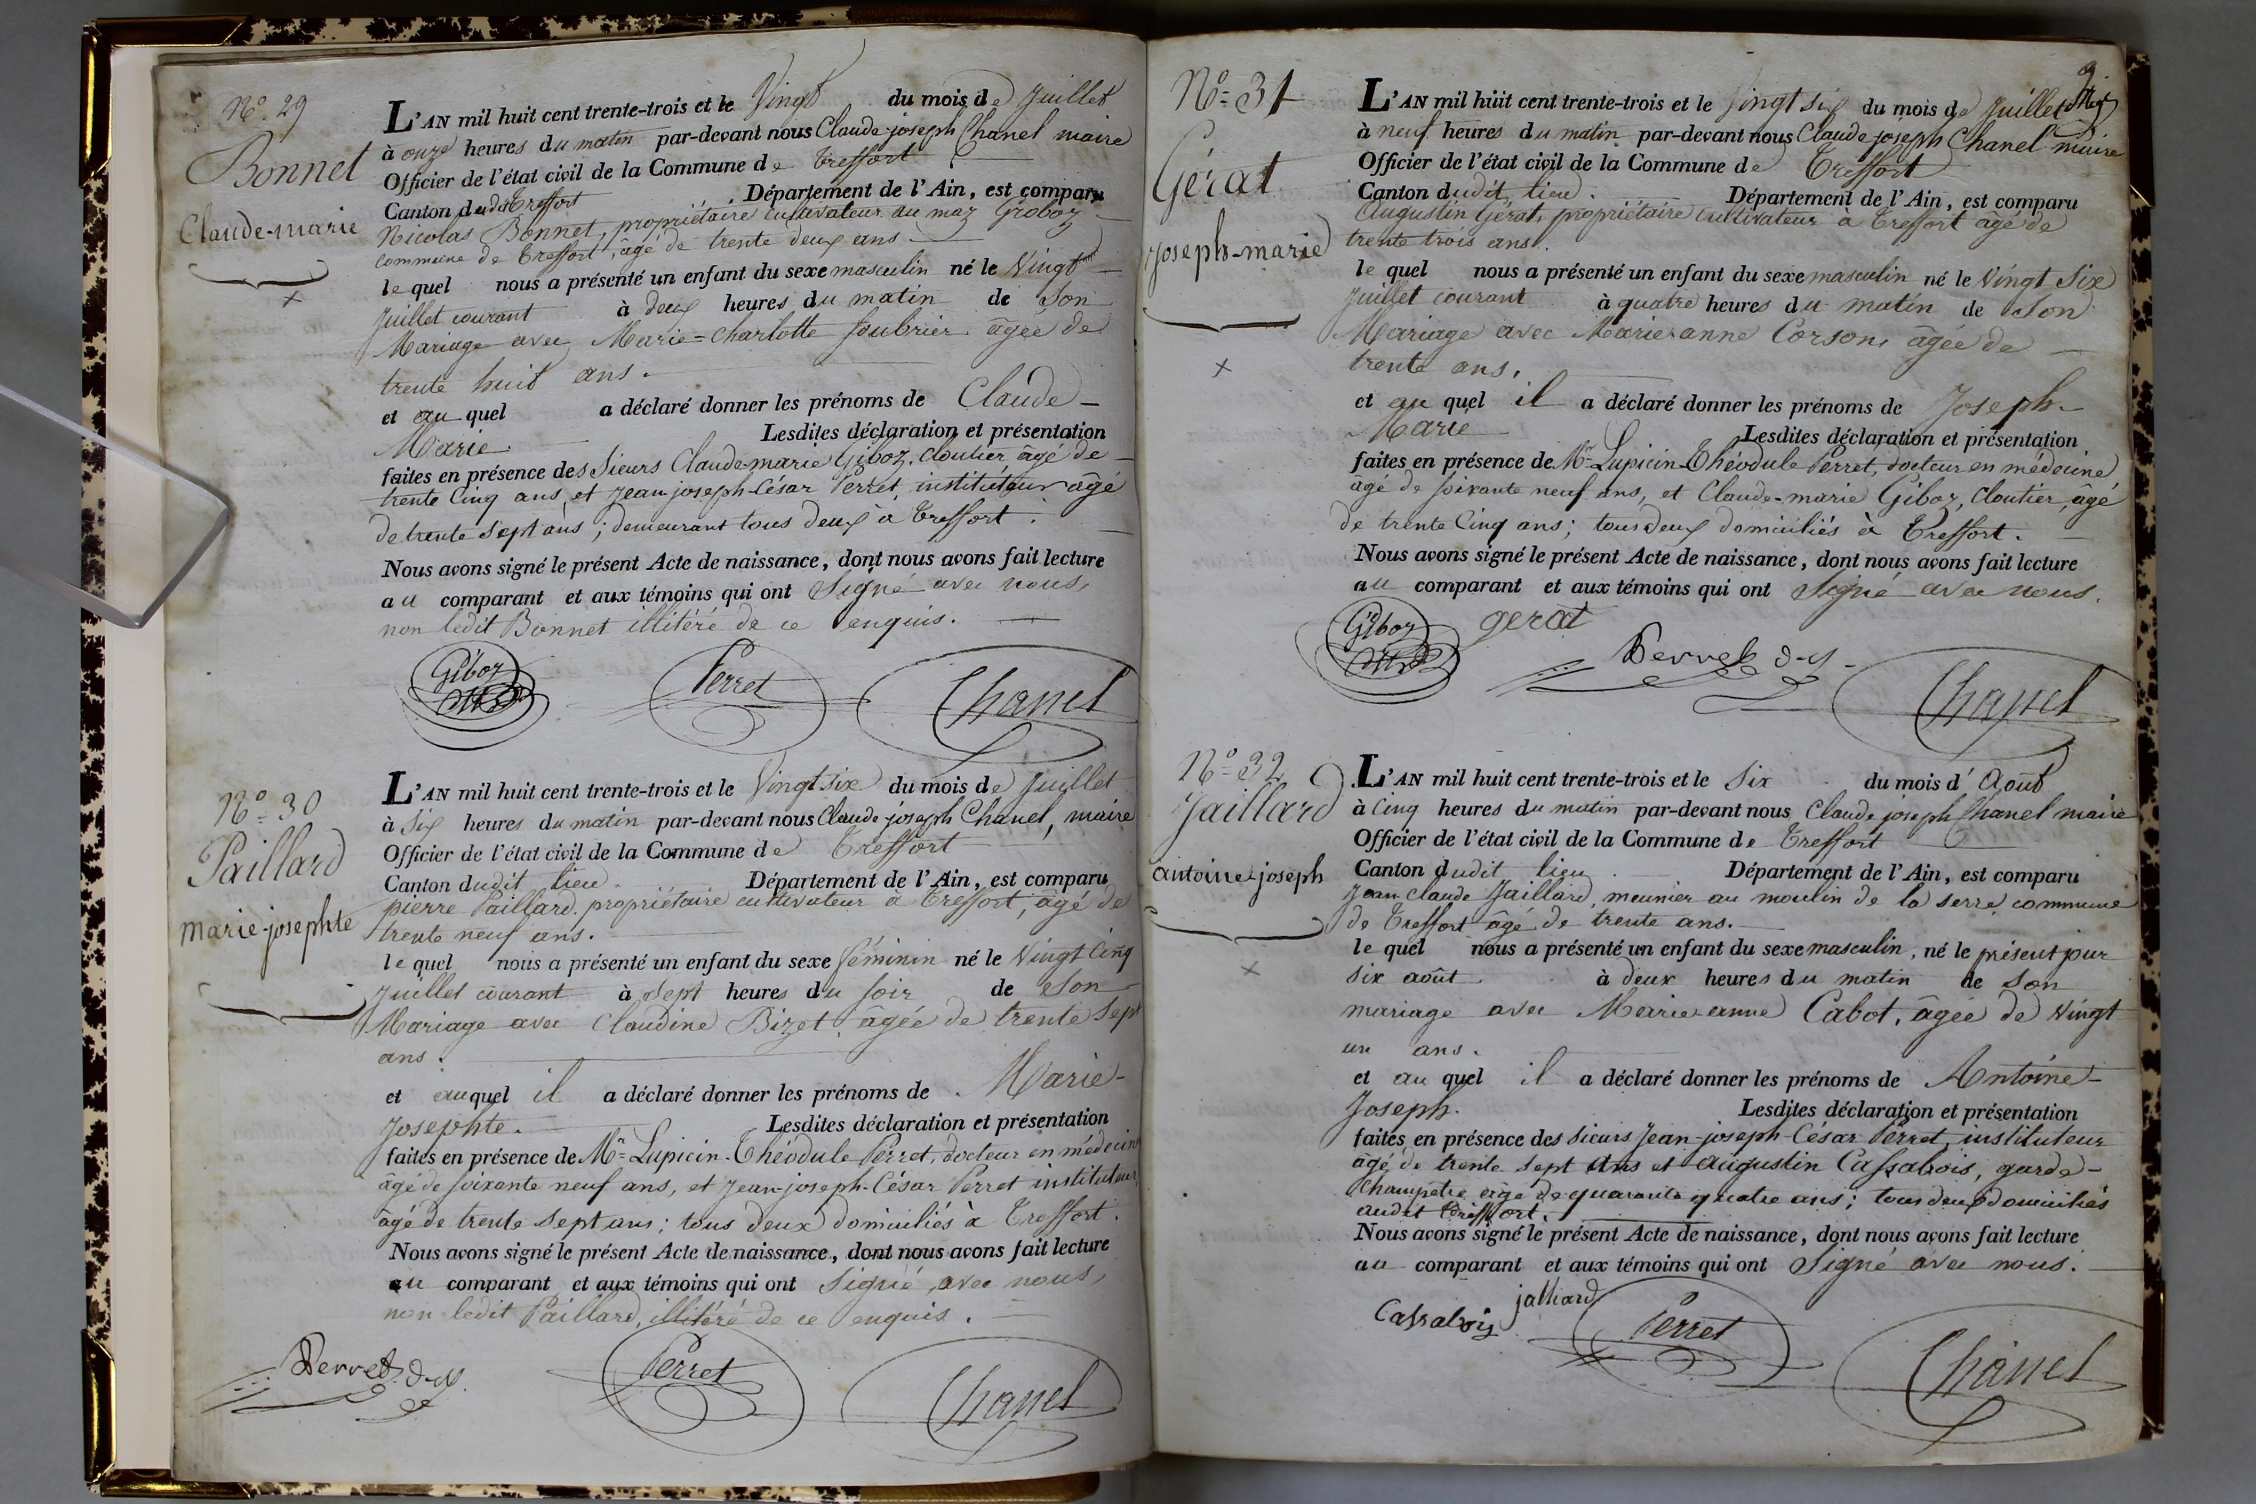 N.º 29
Bonnet
Claude-marie
L'AN mil huit cent trente-trois et le Vingt du mois de Juillet
à onze heures du matin par-devant nous Claude-joseph Chanel maire
Officier de l'état civil de la Commune de Treffort
Canton dudit Treffort. Département de l'Ain, est comparu
Nicolas Bonnet, propriétaire cultivateur au maz Groboz
commune de Treffort, âgé de trente deux ans.
lequel nous a présenté un enfant du sexe masculin né le Vingt
Juillet courant à deux heures du matin de son
Mariage avec Marie=charlotte Soubrier âgée de
trente huit ans.
et au quel a déclaré donner les prénoms de Claude-
Marie. Lesdites déclaration et présentation
faites en présence des Sieurs Claude-marie Giboz, cloutier âgé de
trente Cinq ans et Jean-joseph-César Perret, instituteur âgé
de trente sept ans; demeurant tous deux à Treffort.
Nous avons signé le présent Acte de naissance, dont nous avons fait lecture
au comparant et aux témoins qui ont Signé avec nous,
non ledit Bonnet illitéré de ce enquis.
Giboz Perret Chanel
N.º 30
Paillard
marie-josephte
L'AN mil huit cent trente-trois et le Vingt six du mois de Juillet
à Six heures du matin par-devant nous Claude joseph Chanel, maire
Officier de l'état civil de la Commune de Treffort
Canton dudit lieu. Département de l'Ain, est comparu
pierre Paillard, propriétaire cultivateur à Treffort, âgé de
trente neuf ans.
lequel nous a présenté un enfant du sexe féminin né le Vingt Cinq
Juillet courant à Sept heures du soir de Son
Mariage avec Claudine Bizet âgée de trente Sept
ans.
et auquel il a déclaré donner les prénoms de Marie-
Josephte. Lesdites déclaration et présentation
faites en présence de Mr. Lupicin-Théodule Perret, docteur en médecine
âgé de soixante neuf ans, et Jean-joseph-César Perret instituteur,
âgé de trente sept ans; tous deux domiciliés à Treffort.
Nous avons signé le présent Acte de naissance, dont nous avons fait lecture
au comparant et aux témoins qui ont Signé avec nous,
non ledit Paillard, illitéré de ce enquis.
Perret d-m. Perret Chanel
N.º 31
Gérat
Joseph-marie
L'AN mil huit cent trente-trois et le Vingt six du mois de Juillet
à neuf heures du matin par-devant nous Claude joseph Chanel maire
Officier de l'état civil de la Commune de Treffort
Canton dudit lieu. Département de l'Ain, est comparu
Augustin Gérat, propriétaire cultivateur à Treffort âgé de
trente trois ans.
lequel nous a présenté un enfant du sexe masculin né le Vingt Six
Juillet courant à quatre heures du matin de Son
Mariage avec Marie-anne Corson, âgée de
trente ans.
et au quel il a déclaré donner les prénoms de Joseph-
Marie Lesdites déclaration et présentation
faites en présence de Mr. Lupicin-Théodule Perret, docteur en médecine
âgé de soixante neuf ans, et Claude-marie Giboz, cloutier, âgé
de trente Cinq ans; tous deux domiciliés à Treffort.
Nous avons signé le présent Acte de naissance, dont nous avons fait lecture
au comparant et aux témoins qui ont Signé avec nous.
Giboz gerat Perret d-m. Chanel
N.º 32
Jaillard
antoine-joseph
L'AN mil huit cent trente-trois et le Six du mois d'Août
à Cinq heures du matin par-devant nous Claude joseph Chanel maire
Officier de l'état civil de la Commune de Treffort
Canton dudit lieu. Département de l'Ain, est comparu
Jean Claude Jaillard, meunier au moulin de la serre, commune
de Treffort âgé de trente ans.
lequel nous a présenté un enfant du sexe masculin, né le présent jour
six août à deux heures du matin de son
mariage avec Marie-anne Cabot, âgée de Vingt
un ans.
et au quel il a déclaré donner les prénoms de Antoine-
Joseph. Lesdites déclaration et présentation
faites en présence des Sieurs Jean-joseph-César Perret, instituteur
âgé de trente sept ans et augustin Cassabois, garde-
champêtre âgé de quarante quatre ans; tous deux domiciliés
audit Treffort.
Nous avons signé le présent Acte de naissance, dont nous avons fait lecture
au comparant et aux témoins qui ont Signé avec nous.
Cassabois jalliard Perret Chanel